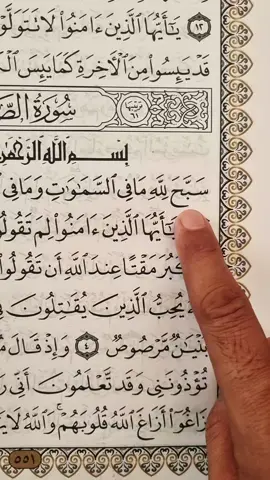 ١٣ يَٰٓأَيُّهَا ٱلَّذِينَ ءَامَنُوا۟ لَا تَتَوَلَّوْ
قَدْ يَئِسُوا۟ مِنَ ٱلْءَاخِرَةِ كَمَا يَئِسَ
سُورَةُ ٱلصَّ
بِسْمِ ٱللَّهِ ٱلرَّحْمَٰنِ
سَبَّحَ لِلَّهِ مَا فِى ٱلسَّمَٰوَٰتِ وَمَا فِى
يَٰٓأَيُّهَا ٱلَّذِينَ ءَامَنُوا۟ لِمَ تَقُولُو
كَبُرَ مَقْتًا عِندَ ٱللَّهِ أَن تَقُولُوا۟
يُحِبُّ ٱلَّذِينَ يُقَٰتِلُونَ فِى
بُنْيَٰنٌ مَّرْصُوصٌ ٤ وَإِذْ قَالَ مُو
تُؤْذُونَنِى وَقَد تَّعْلَمُونَ أَنِّى رَ
زَاغُوٓا۟ أَزَاغَ ٱللَّهُ قُلُوبَهُمْ ۚ وَٱللَّهُ لَا يَ
٥٥١